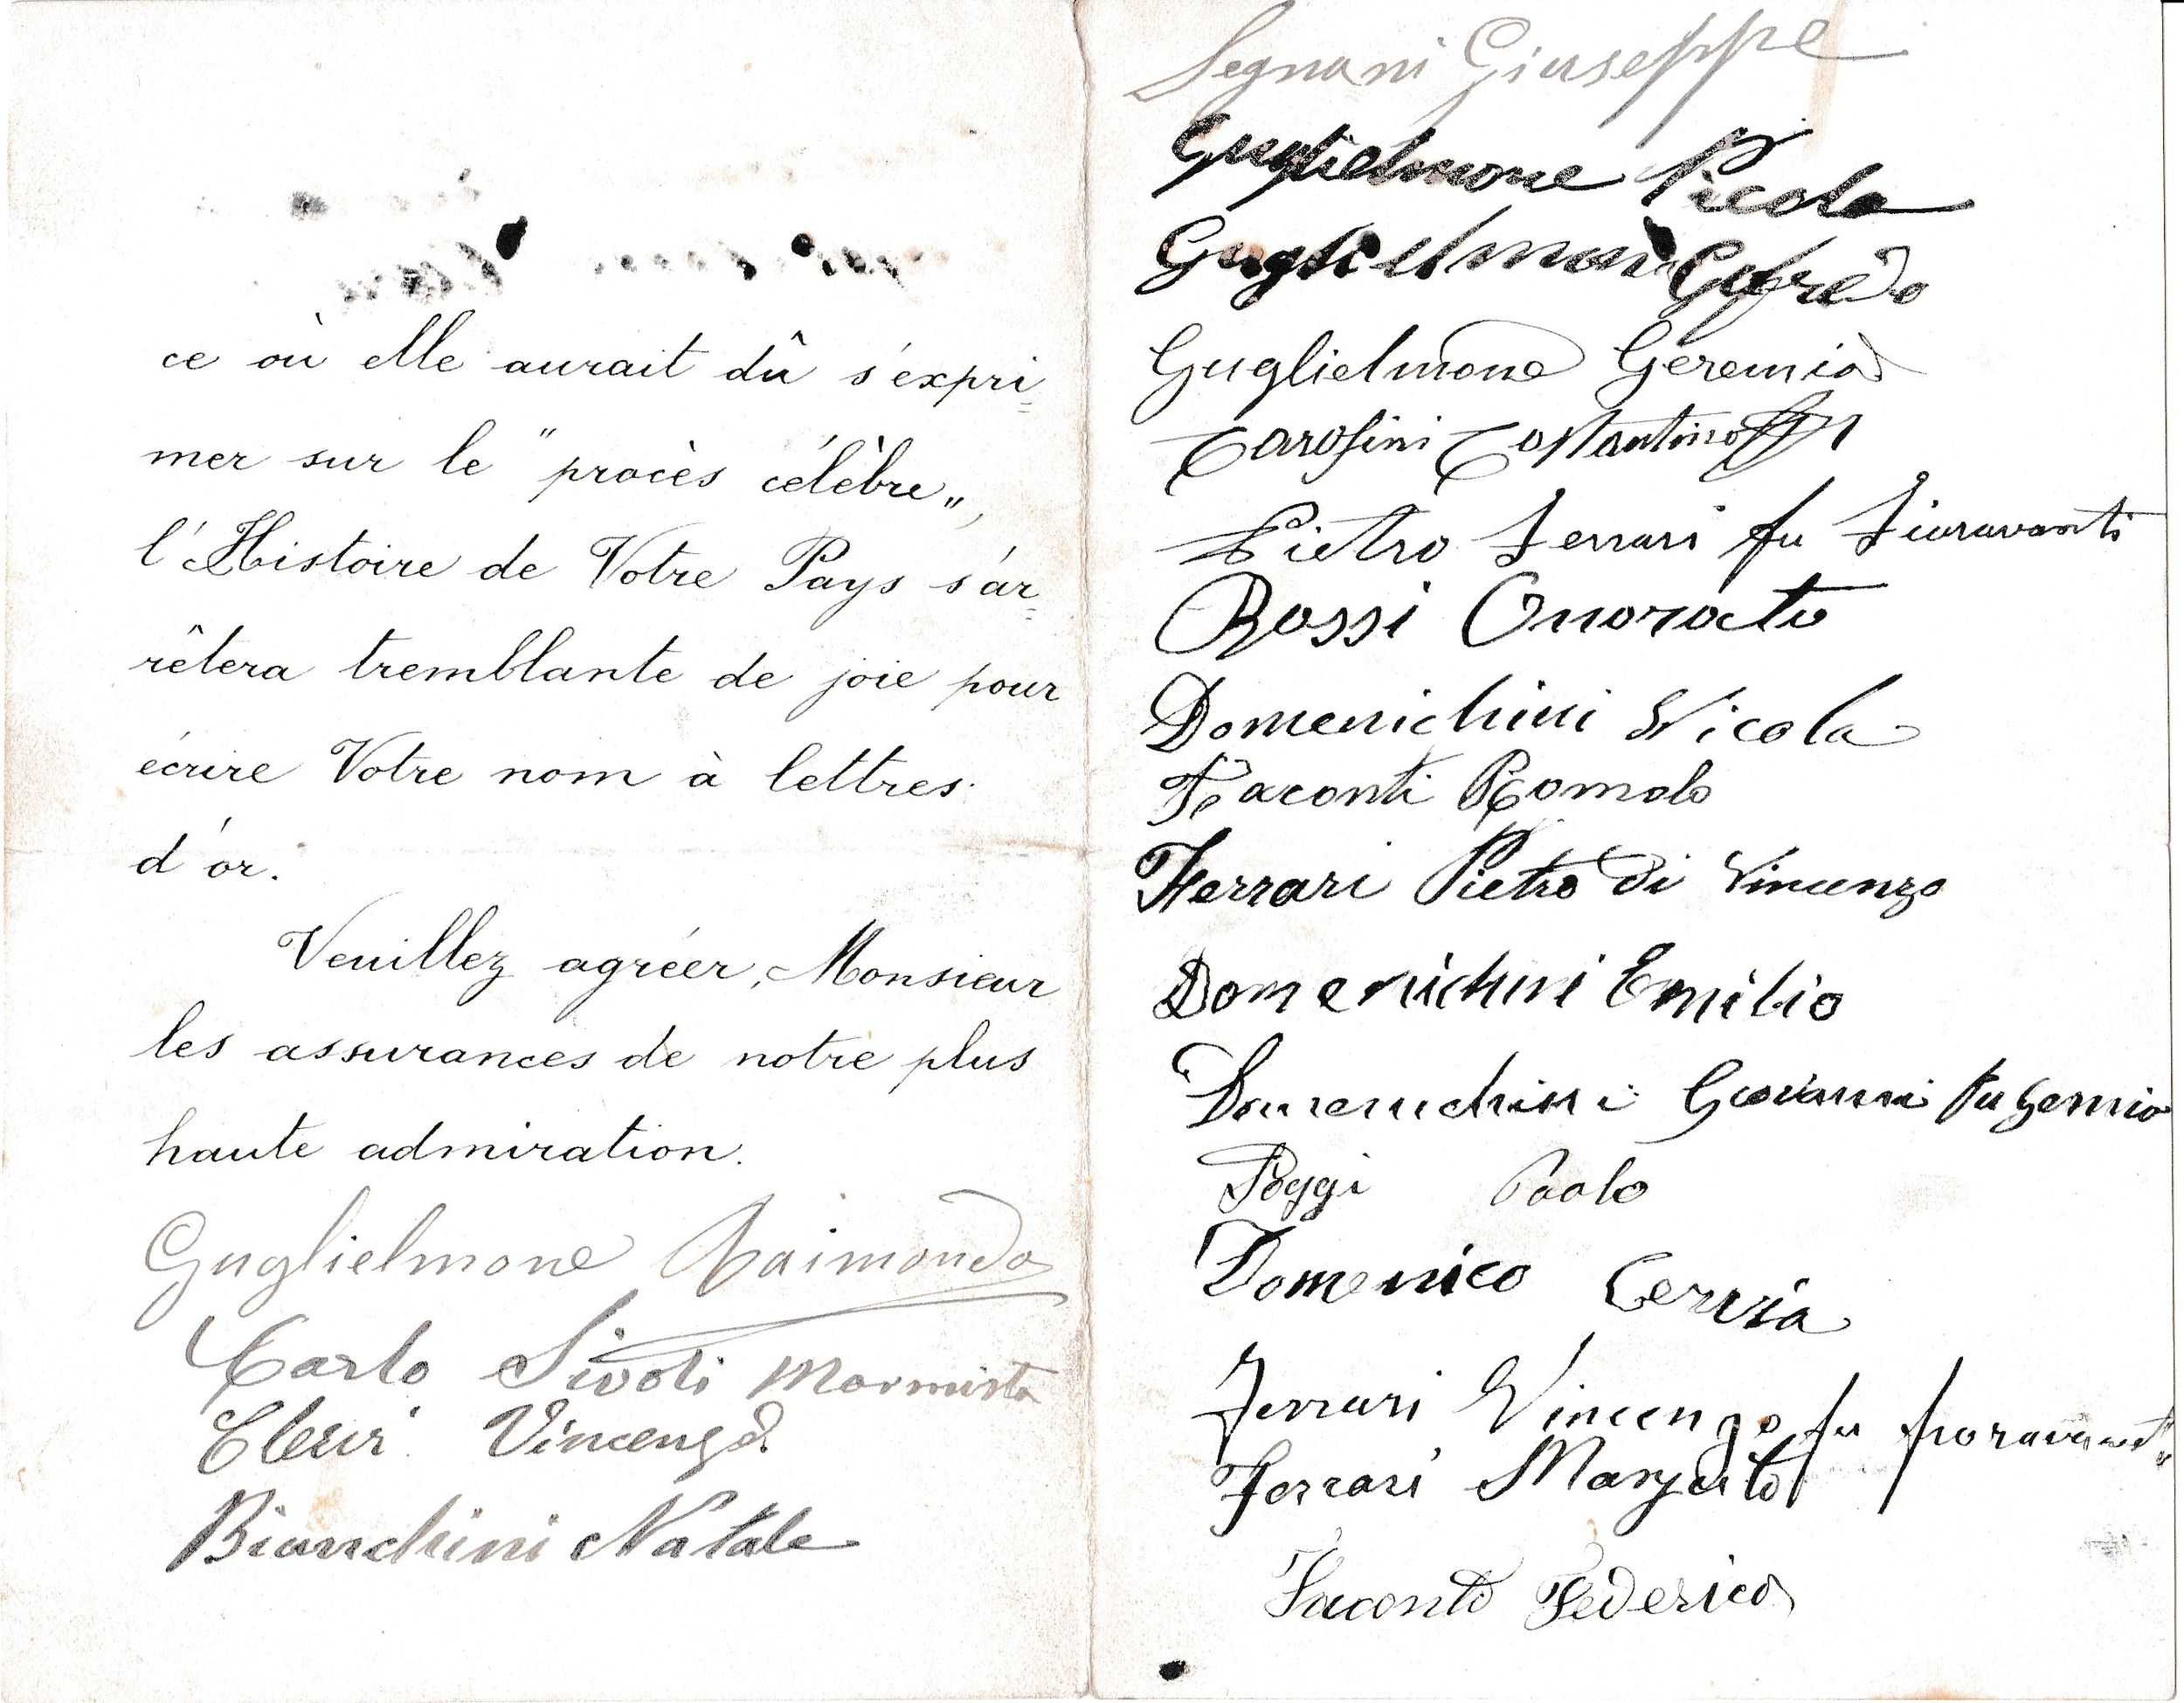 ce où elle aurait dû s'expri=
mer sur le "procès célèbre",
l'Histoire de Votre Pays s'ar=
rêtera tremblante de joie pour
écrire Votre nom à lettres
d'or.
Veuillez agréer, Monsieur
les assurances de notre plus
haute admiration.
Guglielmone Raimondo
Carlo Sivoli Marmista
Cleri Vincenzo
Bianchini Natale
Segnani Giuseppe
Guglielmone Nicola
Guglielmoni Gofredo
Guglielmone Geremia
Carosini Costantino
Pietro Ferrari fu Fioravanti
Rossi Onorato
Domenichini Nicola
Faconti Romolo
Ferrari Pietro di Vincenzo
Domenichini Emilio
Domenichini Giovanni fu
Poggi Paolo
Domenico Cervia
Ferrari Vincenzo fu fioravanti
Ferrari
Faconti Federico